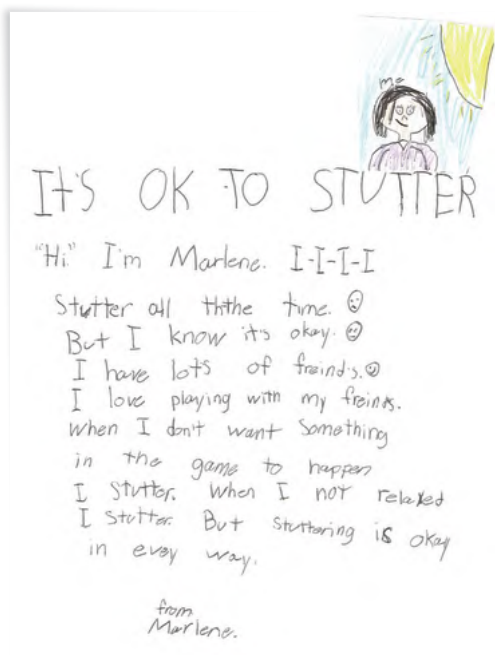 me
IT'S OK TO STUTTER
"Hi" I'm Marlene. I-I-I-I
Stutter all ththe time.
But I know it's okay.
I have lots of freind's.
I love playing with my freinds.
when I don't want Something
in the game to happen
I Stutter. When I not relaxed
I Stutter. But Stuttering is okay
in evey way.
from
Marlene.